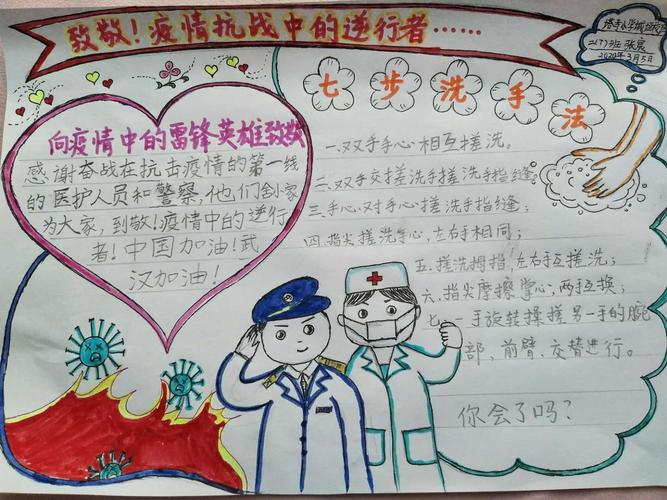 致敬！疫情抗战中的逆行者……
二(7)班 张宸
2020年3月5日
向疫情中的雷锋英雄致敬
感谢奋战在抗击疫情的第一线
的医护人员和警察，他们舍家
为大家，到敬！疫情中的逆行
者！中国加油！武
汉加油！
七步洗手法
一.双手手心相互搓洗。
二.双手交搓洗手搓洗手指缝。
三.手心对手心搓洗手指缝；
四.指尖搓洗手心，左右手相同；
五.搓洗拇指，左右手互搓洗；
六.指尖摩擦掌心，两手互换；
七.一手旋转揉搓另一手的腕
部、前臂、交替进行。
你会了吗？